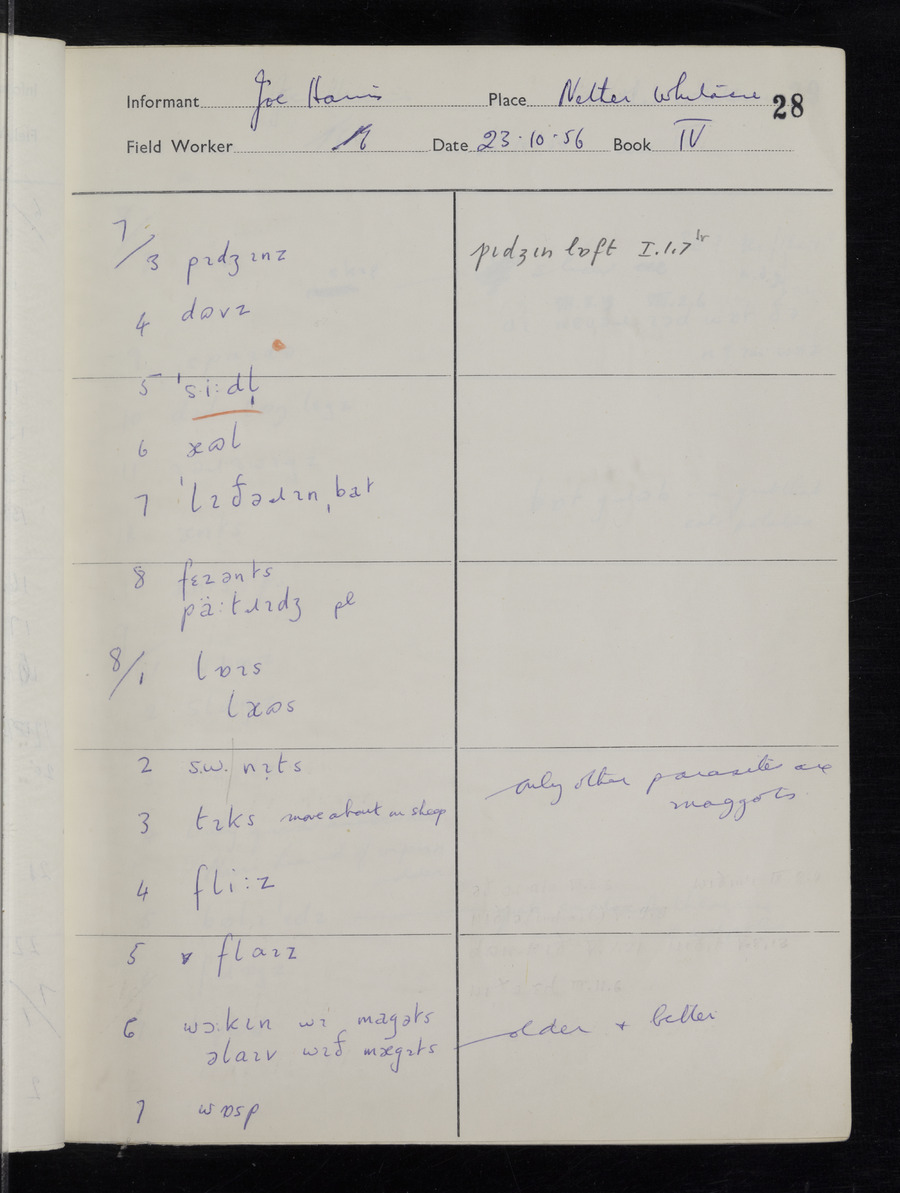 Informant Joe Harris Place Nether Whitacre 28
Field Worker Date 23·10·56 Book IV
7/3 pɪdʒɪnz pɪdʒɪn lɒft I.1.7
4 dɷvz
5 ˈsi:dl̩
6 æɷl
7 ˈlɛðəɹɪnˌbat
8 fɛzənts
pä:tɹɪdʒ pl
8/1 lɒɪs
læɷs
2 s.w. nɪts only other parasites are
maggots.
3 tɪks move about on sheep
4 fli:z
5 flaɪz
6 wɔ:kɪn wɪ magəts older + better
əlaɪv wɪð mægɪts
7 wɒsp